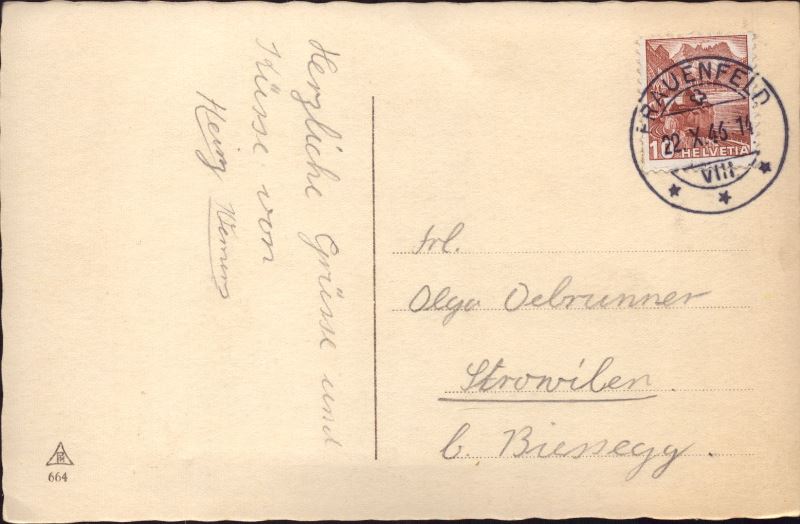 Herzliche Grüsse und
Küsse von
Heinz Werner
FRAUENFELD
22.X.46-14
VIII
10 HELVETIA
Frl.
Olga Oebrunner
Strowilen.
b. Biessegg.
664